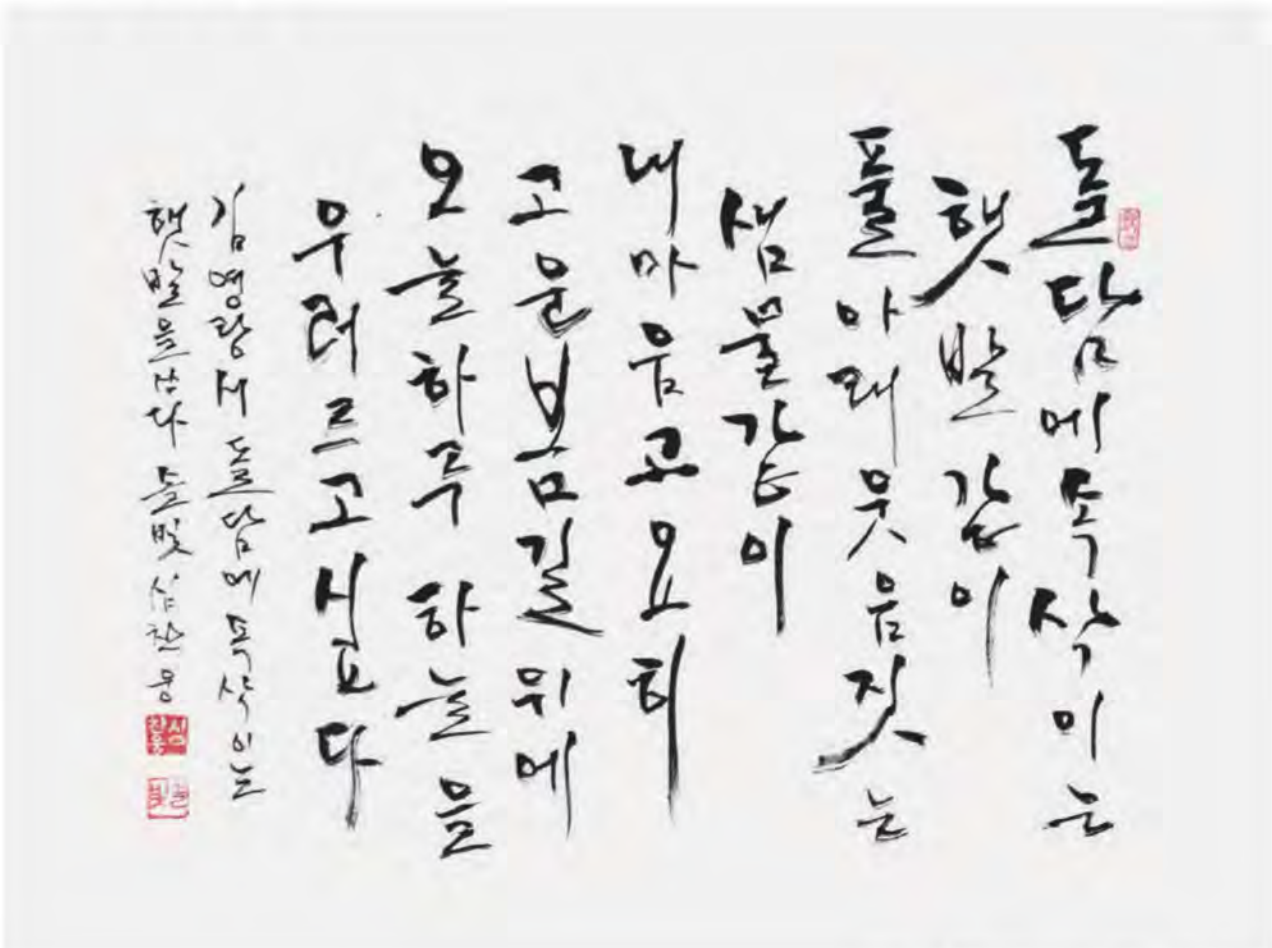 돌담에 속삭이는
햇발같이
풀 아래 웃음짓는
샘물같이
내 마음 고요히
고운 봄길 위에
오늘 하루 하늘을
우러르고 싶다
김영랑 시 돌담에 속삭이는
햇발을 쓰다 늘빛 심찬웅
심찬웅
늘빛